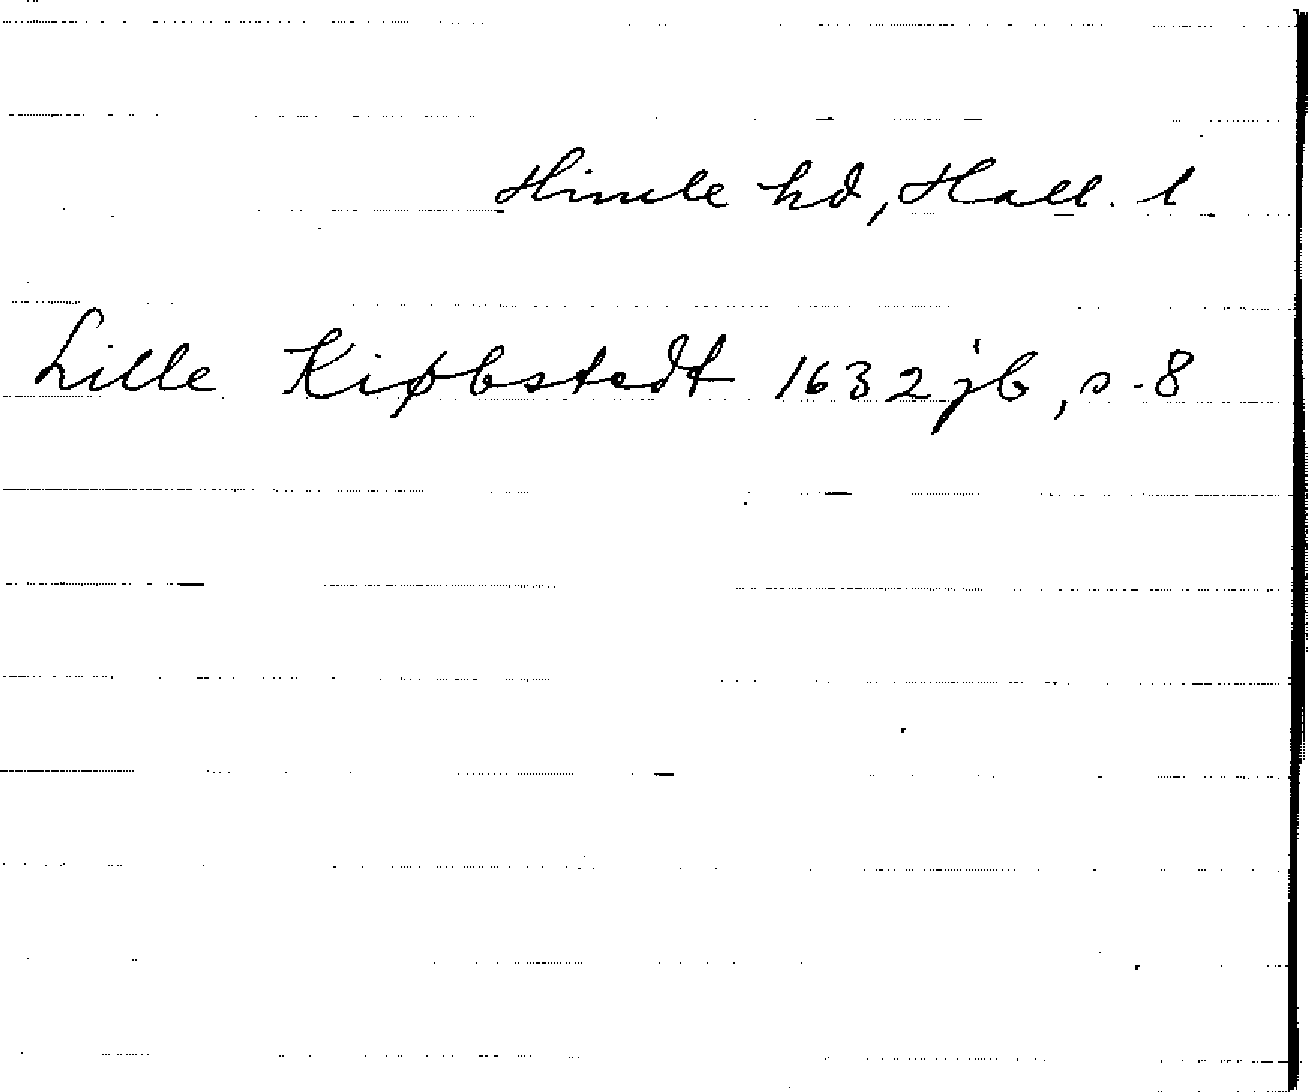 Himle hd, Hall. l
Lille Kiøbstedt 1632 jb, s. 8